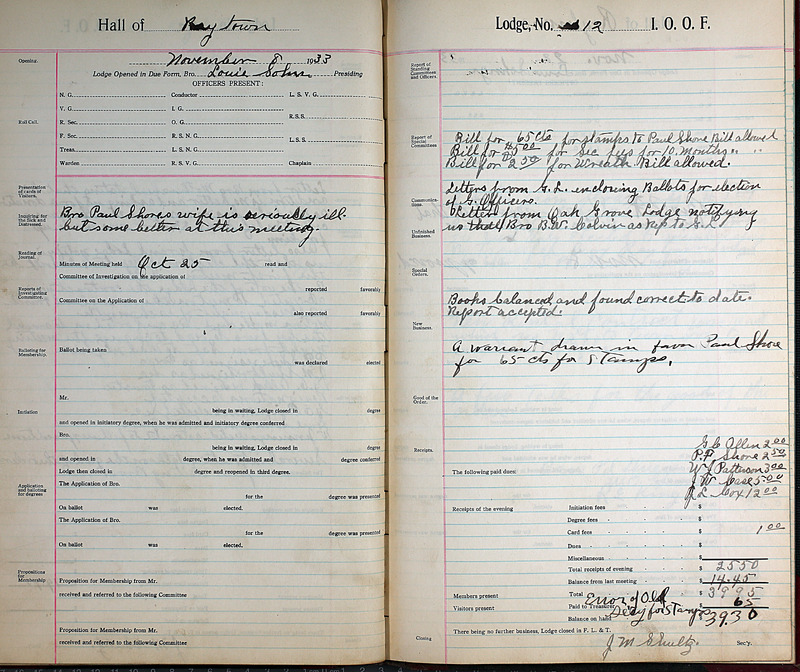 Hall of Ray town
November 8 1933
Lodge Opened in Due Form, Bro. Louie Sohm Presiding
OFFICERS PRESENT:
Opening.
Roll Call.
N. G. Conductor L. S. V. G.
V. G. I. G.
R. Sec. O. G. R.S.S.
F. Sec. R. S. N. G.
Treas. L. S. N. G. L.S.S.
Warden R. S. V. G. Chaplain
Presentation of cards of Visitors.
Inquiring for the Sick and Distressed.
Bro Paul Shores wife is seriously ill
but some better at this meeting.
Reading of Journal.
Minutes of Meeting held Oct 25 read and
Committee of Investigation on the application of
Reports of Investigating Committee.
reported favorably
Committee on the Application of
also reported favorably
Balloting for Membership.
Ballot being taken
was declared elected
Mr.
Initiation
being in waiting, Lodge closed in degree
and opened in initiatory degree, when he was admitted and initiatory degree conferred
Bro.
being in waiting, Lodge closed in degree
and opened in degree, when he was admitted and degree conferred
Lodge then closed in degree and reopened in third degree.
Application and balloting for degrees
The Application of Bro.
for the degree was presented
On ballot was elected.
The Application of Bro.
for the degree was presented
On ballot was elected.
Propositions for Membership
Proposition for Membership from Mr.
received and referred to the following Committee
Proposition for Membership from Mr.
received and referred to the following Committee
Lodge, No. 12 I. O. O. F.
Report of Standing Committees and Officers.
Report of Special Committees
Bill for 65 cts for stamps to Paul Shore Bill allowed
Bill for $5.00 for Sec dues for 10 months " "
Bill for 2.50 for Wreath Bill allowed.
Communications.
Letters from G. L. inclosing Ballots for election
of G. Officers.
Letter from Oak Grove Lodge notifying
us that Bro B.W. Colvin as rep to G.L
Unfinished Business.
Special Orders.
Books balanced and found correct to date.
Report accepted.
New Business.
A warrant drawn in favor Paul Shore
for 65 cts for Stamps.
Good of the Order.
Receipts.
G C Allen 2 00
P.P. Shore 2 50
The following paid dues: W J Patterson 3 00
J W Case 5.00
J L Cox 12 00
Receipts of the evening Initiation fees $
Degree fees $
Card fees $ 1 00
Dues $
Miscellaneous $
Total receipts of evening $ 25 50
Balance from last meeting $ 14.45
Members present Total $ 39 95
Error of Old
Visitors present Paid to Treasurer 65
Secy for Stamps
Balance on hand $ 39.30
There being no further business, Lodge closed in F. L. & T.
Closing J M Shultz Sec'y.